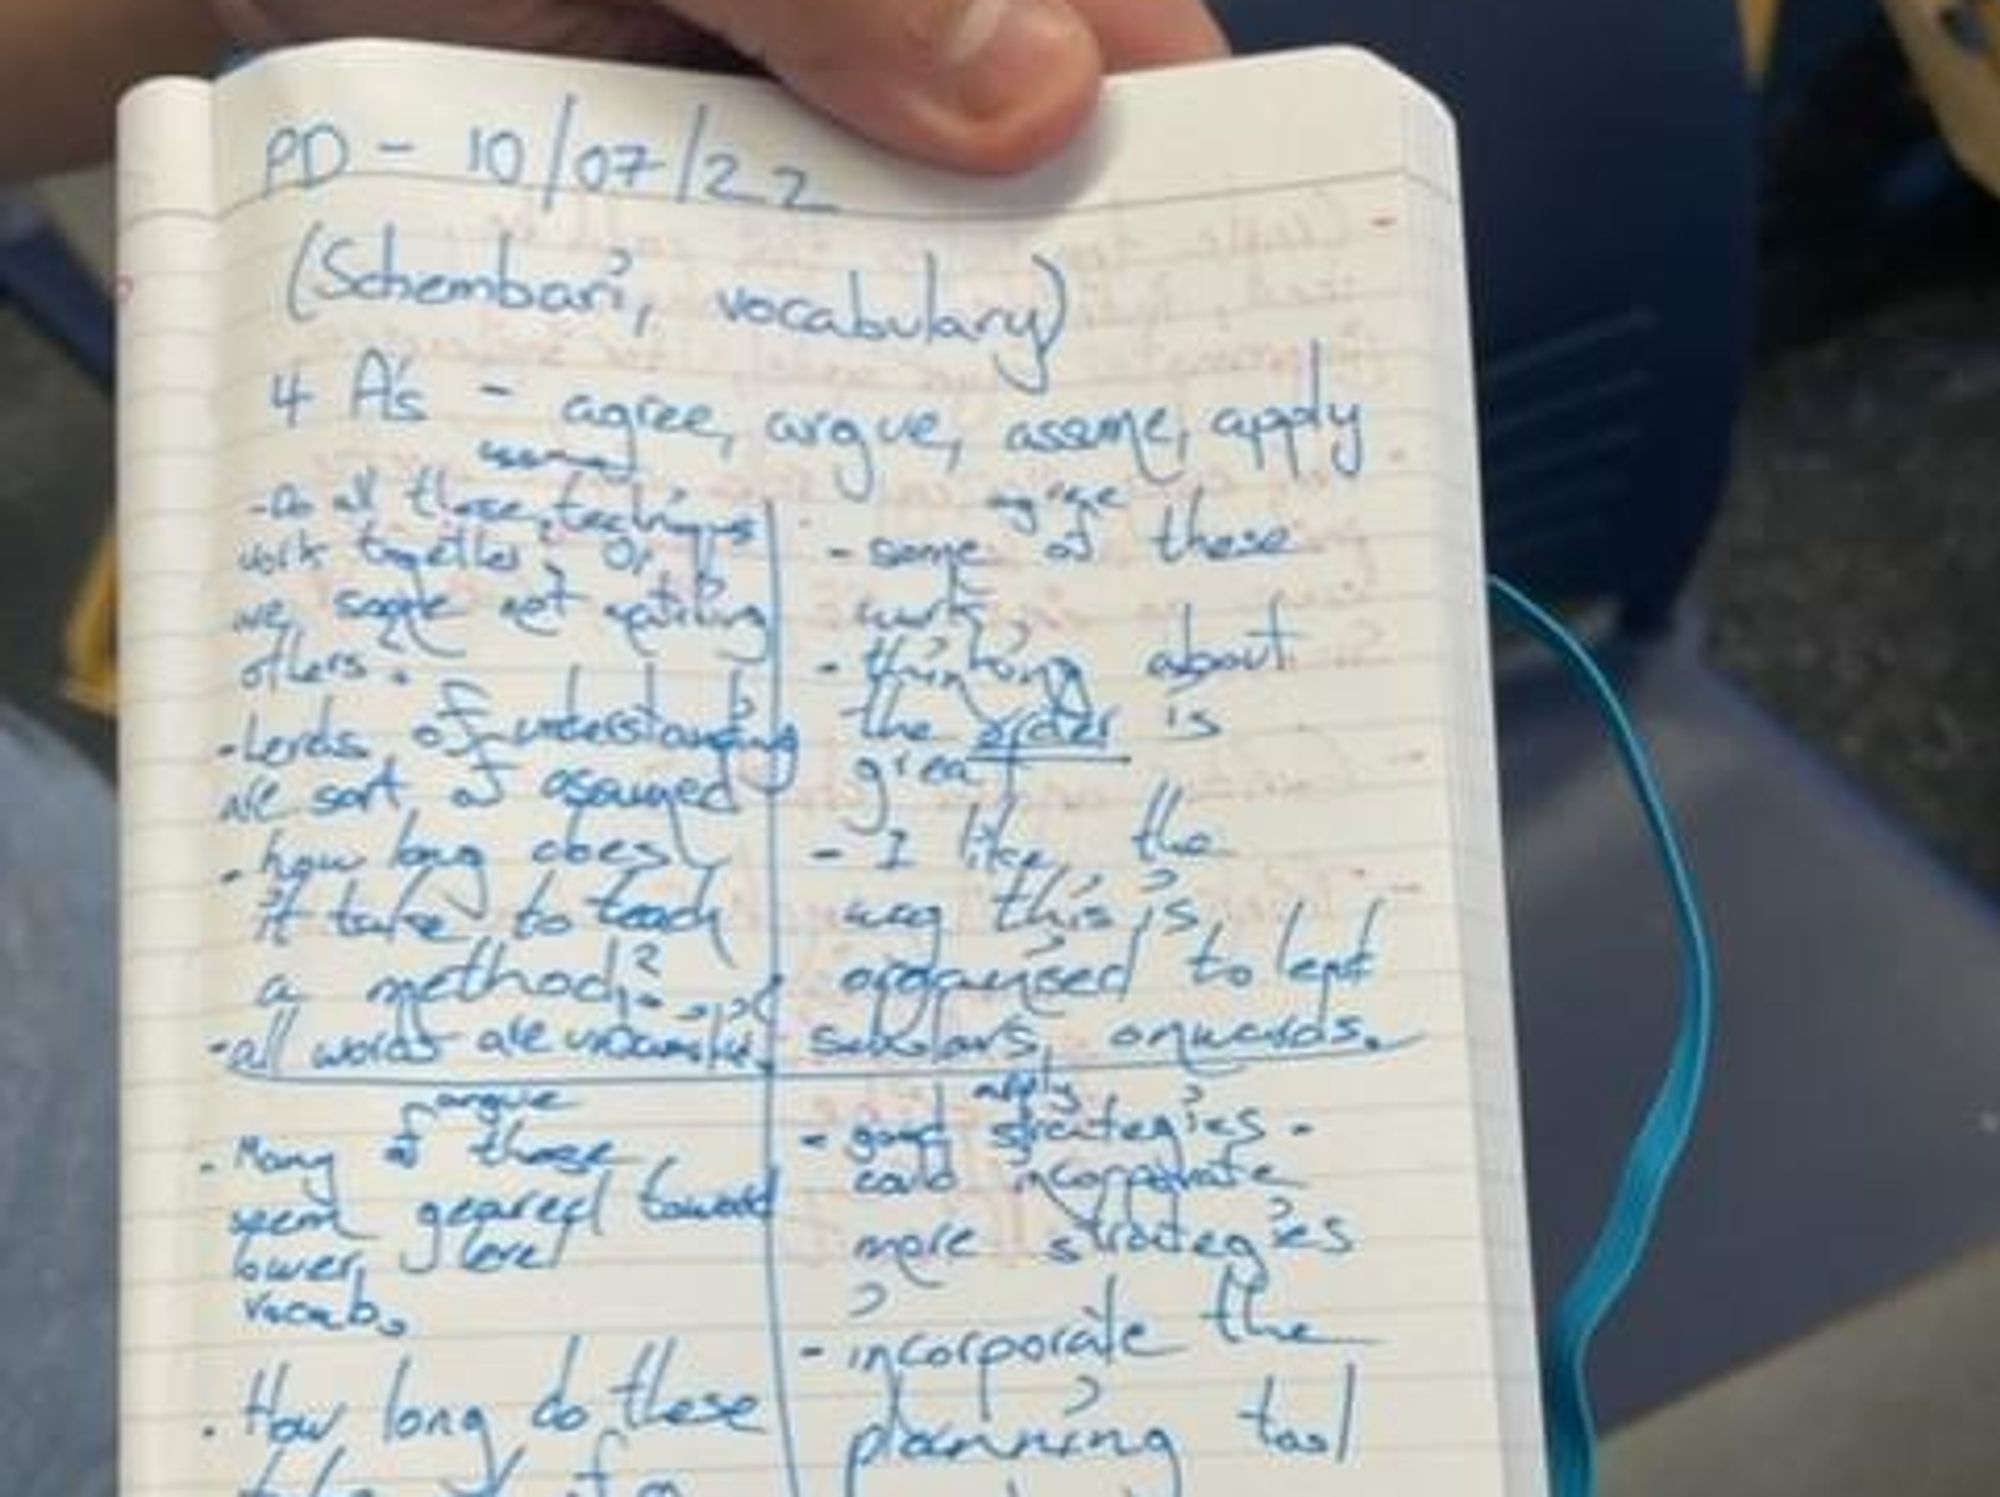 PD - 10/07/22
(Schembari, vocabulary)
4 A's - agree, argue, assume, apply
- Do all these techniques
work together? Or
we some not
others.
- of understanding
are sort of assumed
- how long does
it take to teach
a method?
- all words are
agree
- some of these
work
- thinking about
the order is
great
- I like the
way this is
organised to
scholars, onwards.
argue
- Many of these
seem geared toward
lower level
vocab.
- How long do these
apply
- good strategies -
could incorporate
more strategies
- incorporate the
planning tool